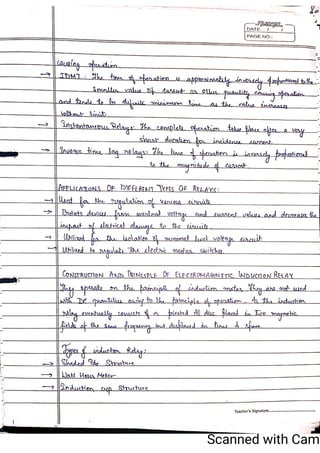 DATE: / /
PAGE NO.:
causing operation.
→ IDMT : The time of operation is approximately inversely proportional to the
smaller value of current or other quantity causing operation
and tends to be definite minimum time as the value increases
without limit.
→ Instantaneous Relays: The complete operation takes place after a very
short duration for incidence current.
→ Inverse time lag relays: The time of operation is inversely proportional
to the magnitude of current.
APPLICATIONS OF DIFFERENT TYPES OF RELAYS:
→ Used for the regulation of various circuits
→ Protects devices from overload voltage and current values and decreases the
impact of electrical damage to the circuits.
→ Utilized for the isolation of minimal level voltage circuit
→ Utilized to regulate the electric motor switches.
CONSTRUCTION AND PRINCIPLE OF ELECTROMAGNETIC INDUCTION RELAY
They operate on the principle of induction motor. They are not used
with DC quantities owing to the principle of operation. In the induction
relay eventually consists of a pivoted Al disc placed in two magnetic
fields of the same frequency but displaced in time & space.
Types of induction Relay:
→ Shaded Pole Structure
→ Watt Hour Meter
→ Induction cup Structure
Teacher's Signature
Scanned with Cam